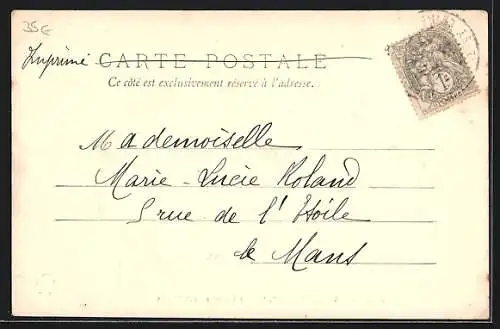 35€
Imprimé CARTE POSTALE
Ce côté est exclusivement réservé à l'adresse.
Mademoiselle
Marie-Lucie Roland
5 rue de l'Etoile
le Mans